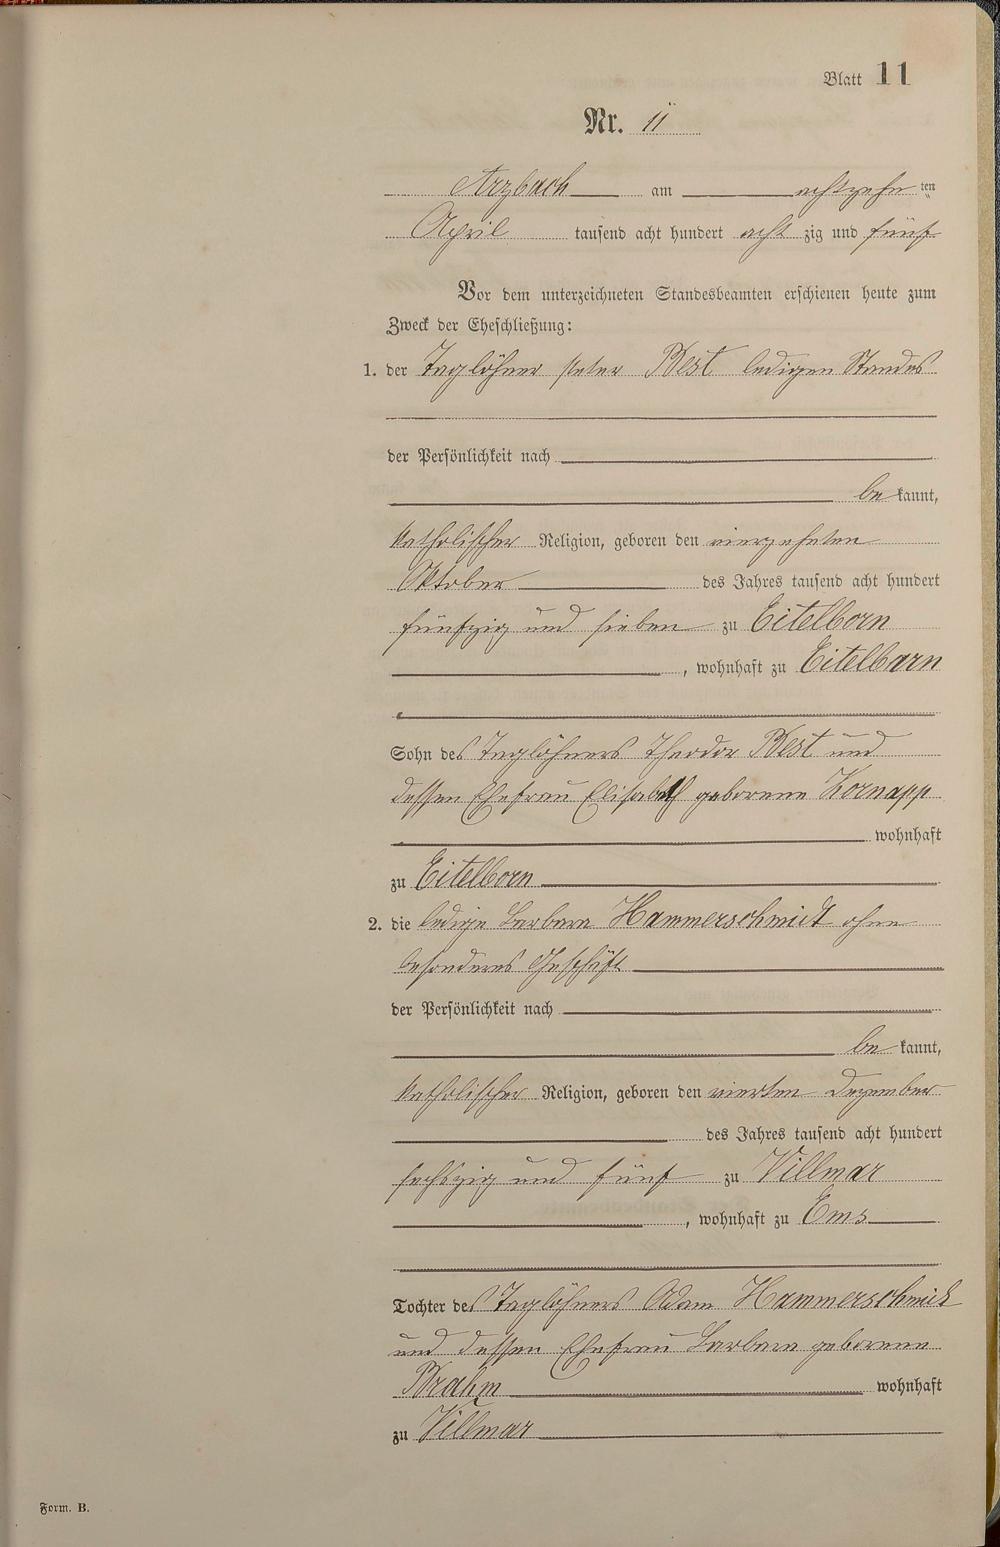 Blatt 11
Nr. 11
Arzbach am achtzehn ten
April tausend acht hundert acht zig und fünf
Vor dem unterzeichneten Standesbeamten erschienen heute zum
Zweck der Eheschließung:
1. der Taglöhner Peter Best ledigen Standes
der Persönlichkeit nach
be kannt,
katholischer Religion, geboren den vierzehnten
Oktober des Jahres tausend acht hundert
fünfzig und sieben zu Eitelborn
, wohnhaft zu Eitelborn
Sohn des Taglöhners Theodor Best und
dessen Ehefrau Elisabeth geborene Kornapp
wohnhaft
zu Eitelborn
2. die ledige Barbara Hammerschmidt ohne
besonderes Geschäft
der Persönlichkeit nach
be kannt,
katholischer Religion, geboren den vierten Dezember
des Jahres tausend acht hundert
sechszig und fünf zu Villmar
, wohnhaft zu Ems
Tochter des Taglöhners Adam Hammerschmidt
und dessen Ehefrau Barbara geborene
Brahm wohnhaft
zu Villmar
Form. B.